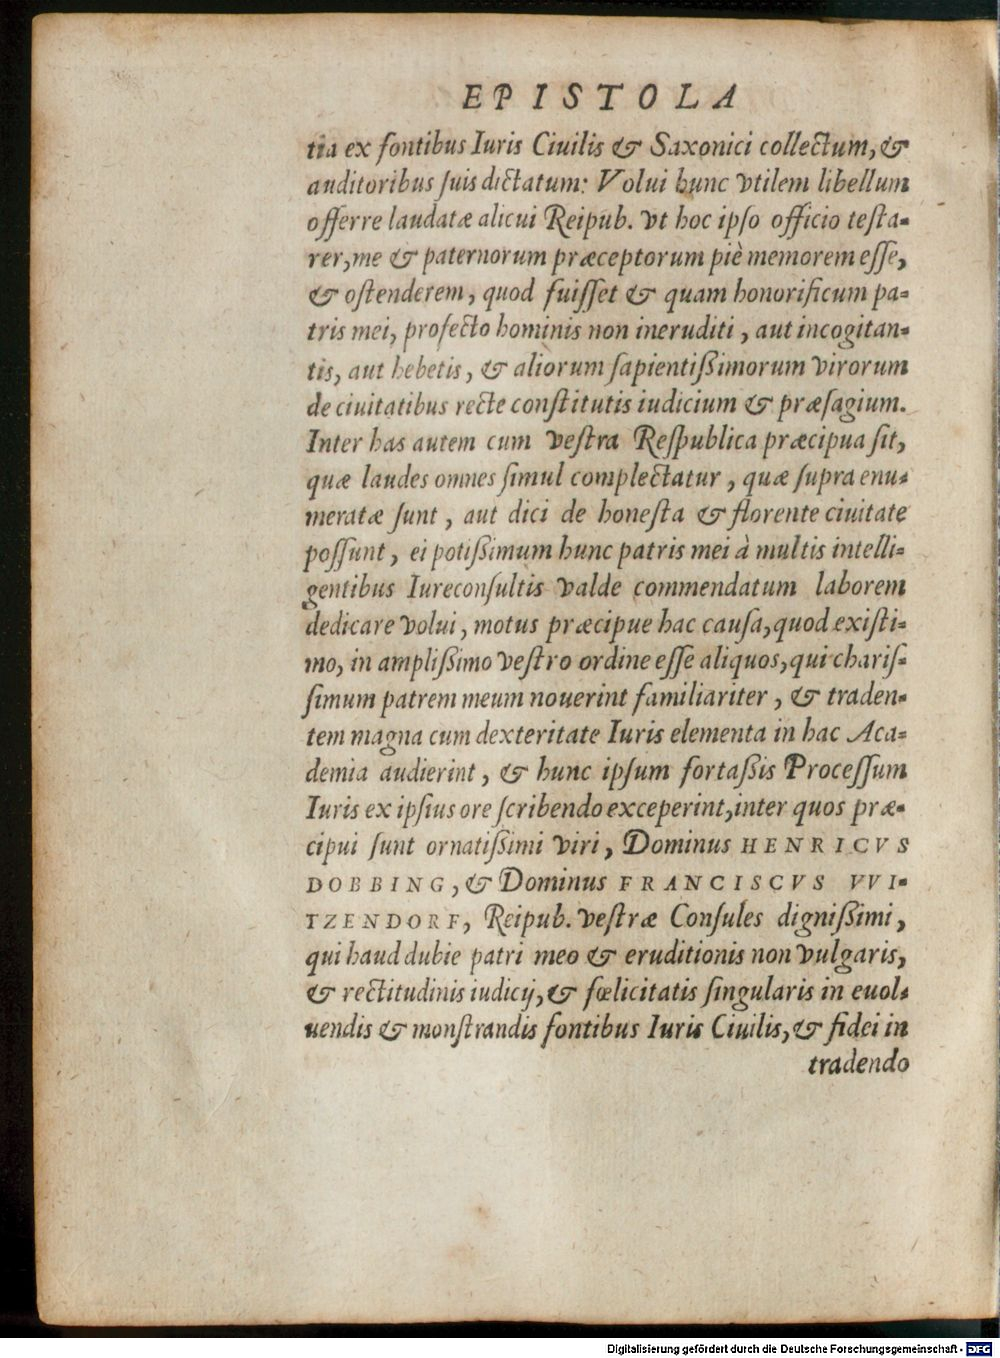 EPISTOLA
tia ex fontibus Iuris Ciuilis & Saxonici collectum, &
auditoribus ſuis dictatum: Volui hunc vtilem libellum
offerre laudatæ alicui Reipub. vt hoc ipſo officio teſta-
rer, me & paternorum præceptorum piè memorem eſſe,
& oſtenderem, quod fuiſſet & quam honorificum pa-
tris mei, profecto hominis non ineruditi, aut incogitan-
tis, aut hebetis, & aliorum ſapientißimorum virorum
de ciuitatibus recte conſtitutis iudicium & præſagium.
Inter has autem cum veſtra Reſpublica præcipua ſit,
quæ laudes omnes ſimul complectatur, quæ ſupra enu-
meratæ ſunt, aut dici de honeſta & florente ciuitate
poſſunt, ei potißimum hunc patris mei à multis intelli-
gentibus Iureconſultis valde commendatum laborem
dedicare volui, motus præcipue hac cauſa, quod exiſti-
mo, in amplißimo veſtro ordine eſſe aliquos, qui chariſ-
ſimum patrem meum nouerint familiariter, & traden-
tem magna cum dexteritate Iuris elementa in hac Aca-
demia audierint, & hunc ipſum fortaßis Proceſſum
Iuris ex ipſius ore ſcribendo exceperint, inter quos præ-
cipui ſunt ornatißimi viri, Dominus HENRICVS
DOBBING, & Dominus FRANCISCVS VVI-
TZENDORF, Reipub. veſtræ Conſules dignißimi,
qui haud dubie patri meo & eruditionis non vulgaris,
& rectitudinis iudicij, & fœlicitatis ſingularis in euol-
uendis & monſtrandis fontibus Iuris Ciuilis, & fidei in
tradendo
Digitalisierung gefördert durch die Deutsche Forschungsgemeinschaft - DFG